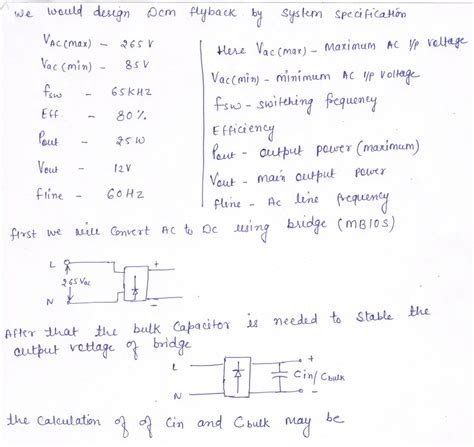 We would design Dcm flyback by system specification
VAC(max) - 265 V
Vac(min) - 85V
fsw - 65KHZ
Eff - 80%
Pout - 25W
Vout - 12V
fline - 60HZ
Here Vac(max) - Maximum AC i/p voltage
Vac(min) - minimum AC i/p voltage
fsw - switching frequency
Efficiency
Pout - output power (maximum)
Vout - main output power
fline - Ac line frequency
first we will convert AC to DC using bridge (MB10S)
L
+
265Vac
N
-
After that the bulk capacitor is needed to stable the
output voltage of bridge
L
+
Cin/Cbulk
N
-
the calculation of of Cin and Cbulk may be